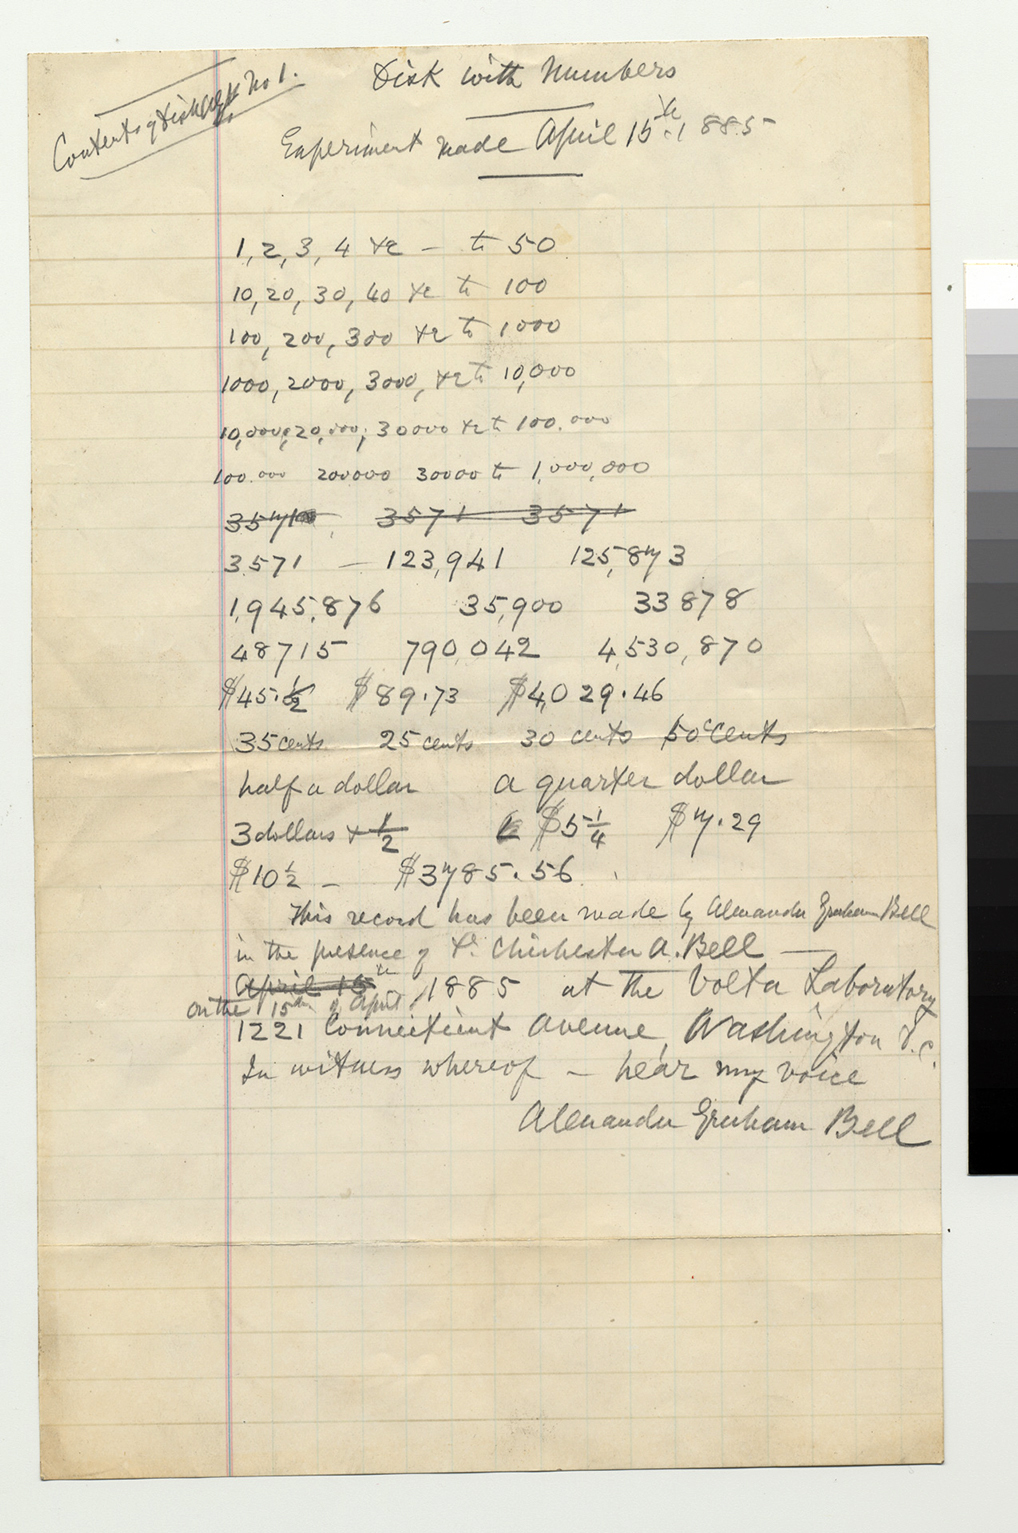 Contents of Disk No 1.
Disk with Numbers
Experiment made April 15th. 1885
1, 2, 3, 4 &c — to 50
10, 20, 30, 40 &c to 100
100, 200, 300 &c to 1000
1000, 2000, 3000, &c to 10,000
10,000, 20,000, 30000 &c to 100.000
100.000 200000 30000 to 1,000,000
3571 3571 3571
3571 — 123,941 125,873
1,945,876 35,900 33878
48715 790,042 4,530,870
$45.½ $89.73 $4,029.46
35 cents 25 cents 30 cents 50 cents
half a dollar a quarter dollar
3 dollars & ½ $5¼ $7.29
$10½ — $3785.56
This record has been made by Alexander Graham Bell
in the presence of Dr. Chichester A. Bell —
April 15th 1885 at the Volta Laboratory
on the 15th of April,
1221 Connecticut Avenue, Washington D.C.
In witness whereof — hear my voice
Alexander Graham Bell